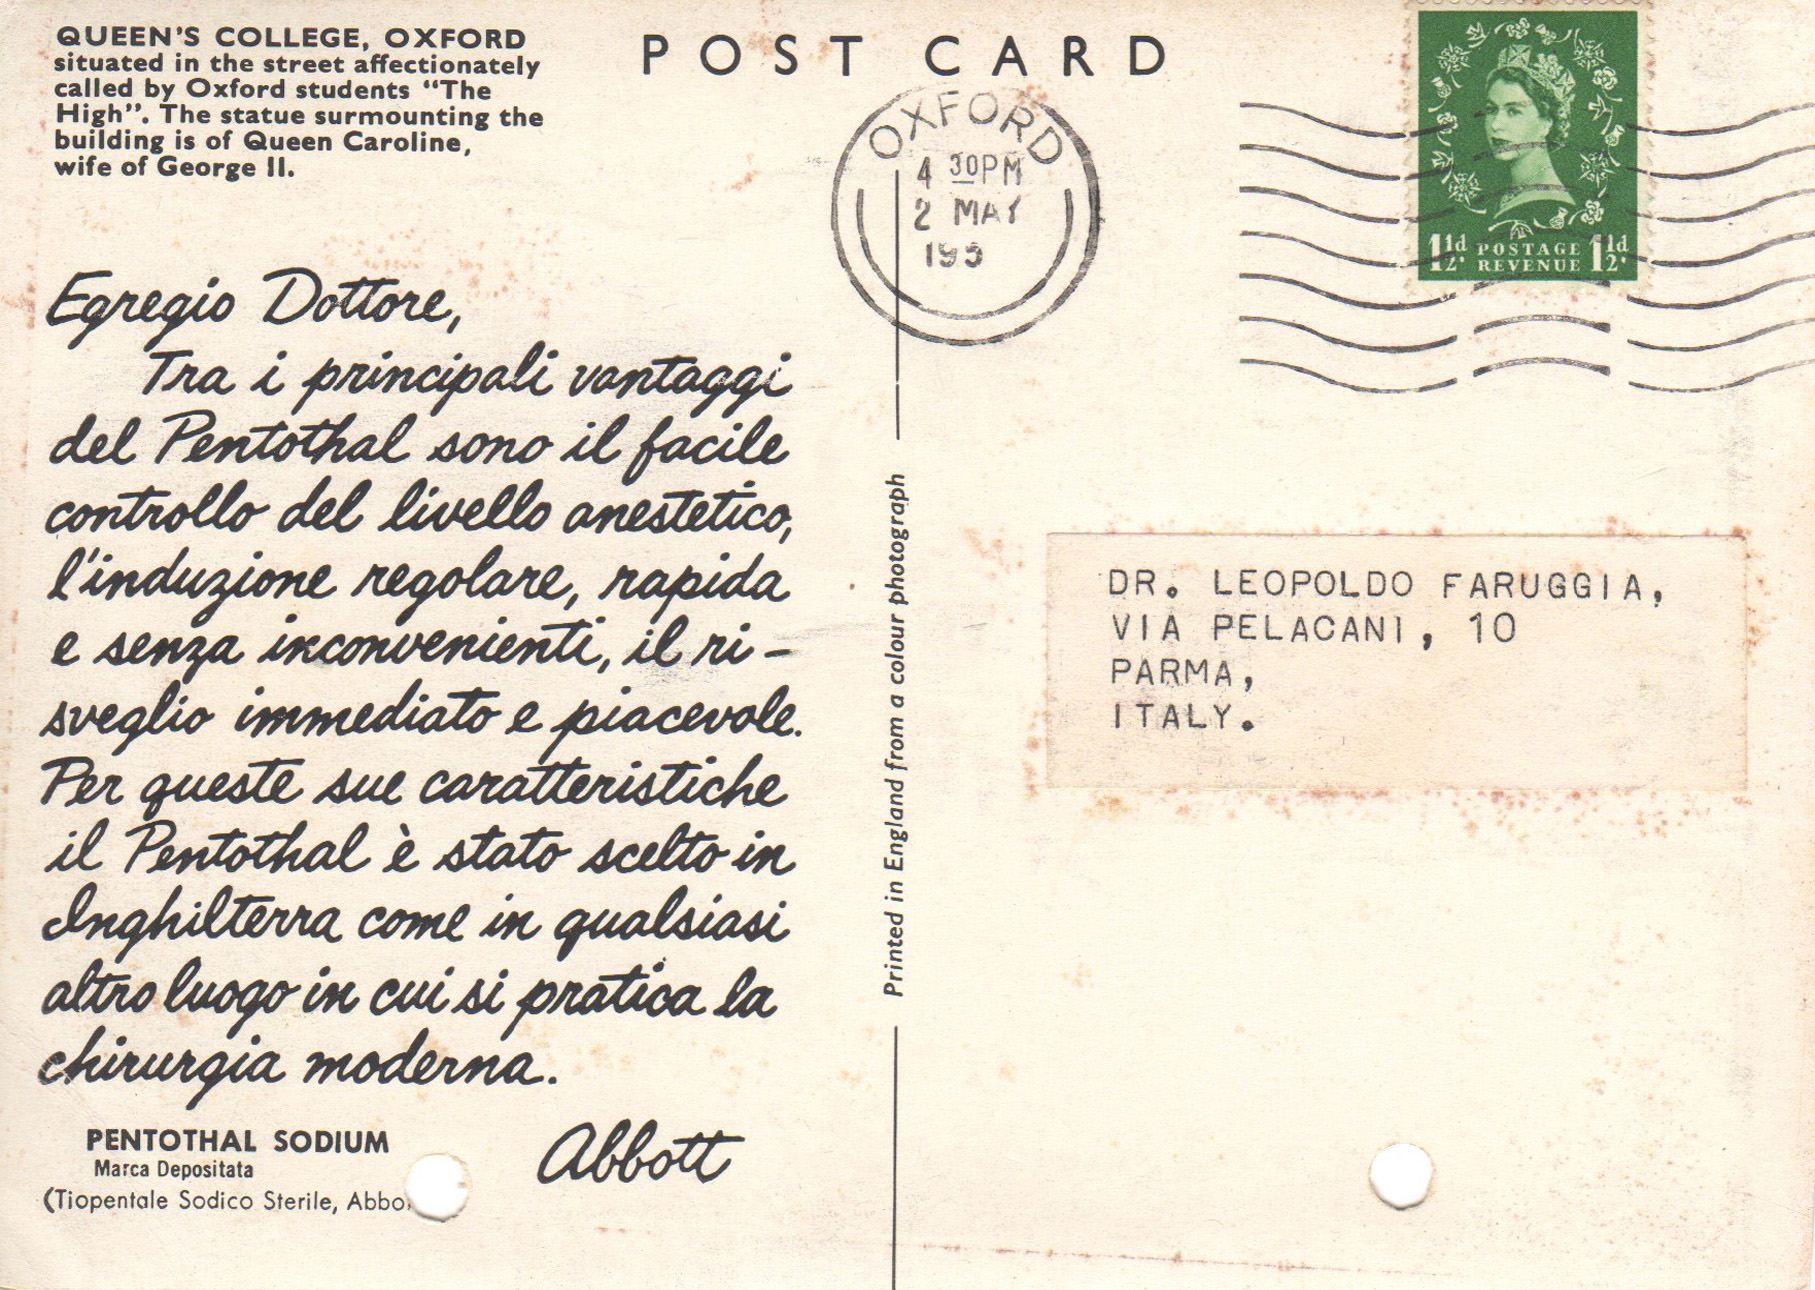 QUEEN'S COLLEGE, OXFORD
situated in the street affectionately
called by Oxford students "The
High". The statue surmounting the
building is of Queen Caroline,
wife of George II.
POST CARD
OXFORD
4 30PM
2 MAY
1½d POSTAGE 1½d
REVENUE
Egregio Dottore,
Tra i principali vantaggi
del Pentothal sono il facile
controllo del livello anestetico,
l'induzione regolare, rapida
e senza inconvenienti, il ri-
sveglio immediato e piacevole.
Per queste sue caratteristiche
il Pentothal è stato scelto in
Inghilterra come in qualsiasi
altro luogo in cui si pratica la
chirurgia moderna.
Abbott
PENTOTHAL SODIUM
Marca Depositata
(Tiopentale Sodico Sterile,
Printed in England from a colour photograph
DR. LEOPOLDO FARUGGIA,
VIA PELACANI, 10
PARMA,
ITALY.